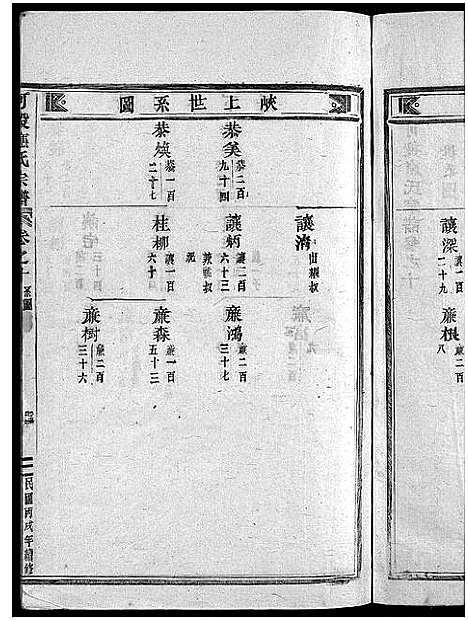 讓深 讓一百二十九
廉根 廉二百八
峽上世系圖
恭美 恭二百九十四
恭煥 恭一百二十七
讓濟 出繼叔
讓炳 讓二百六十三
桂柳 讓一百六十四
廉鴻 廉二百三十七
廉森 廉一百五十三
廉樹 廉二百三十六
氏宗譜 卷之一 系圖
民國丙戌年續修